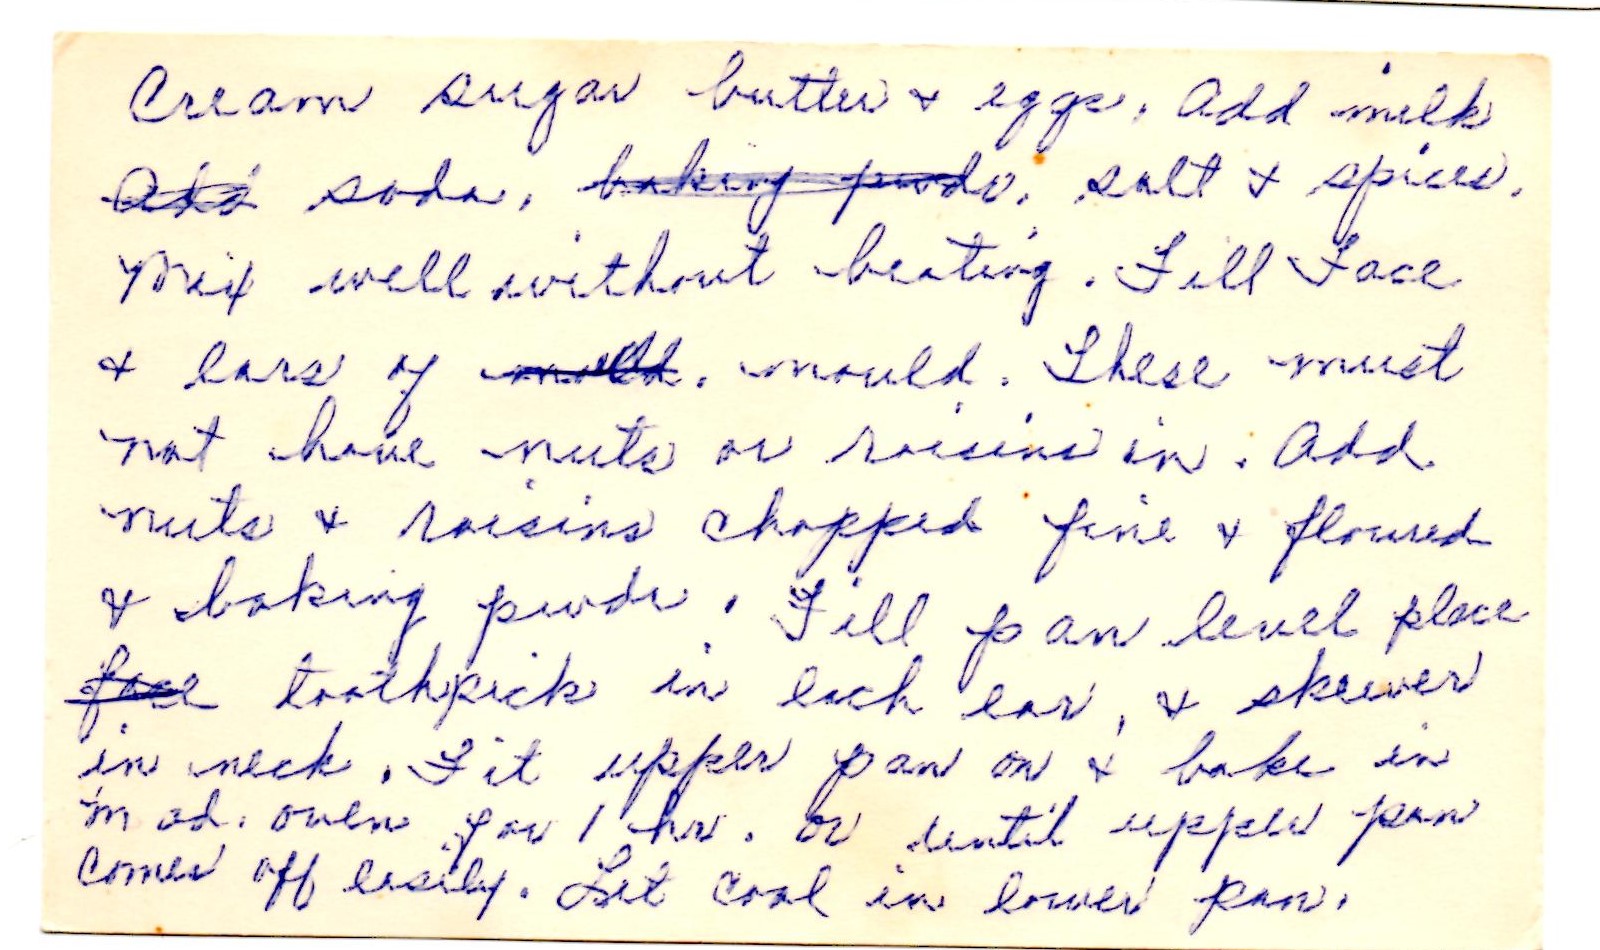 Cream sugar butter & eggs. Add milk
Add soda, baking powdr. salt & spices.
Mix well without beating. Fill Face
& ears of mold. mould. These must
not have nuts or raisins in. Add
nuts & raisins chopped fine & floured
& baking powdr. Fill pan level place
face toothpick in each ear, & skewer
in neck. Fit upper pan on & bake in
mod. oven for 1 hr. or until upper pan
comes off easily. Let cool in lower pan.